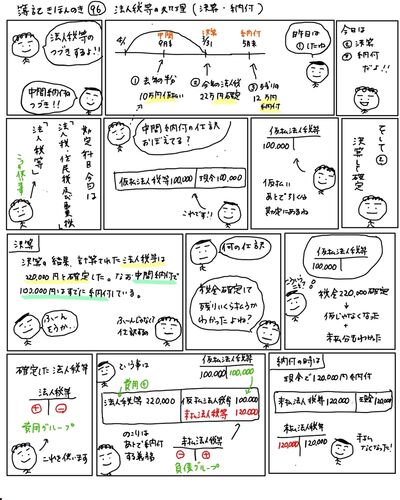 簿記きほんのき 96 法人税等の処理（決算・納付）
法人税等の
つづきするよ!!
中間納付の
つづき!!
4/1
中間
9月末
決算
3/31
納付
5月末
① 去年の半分
10万円仮払い
② 今年の法人税
22万円確定
③ 残りの
12万円
納付
昨日は
①したね
今日は
② 決算
③ 納付
だよ!!
勘定科目今日は
「法人税・住民税及び事業税」
「法人税等」
こっち使う
中間納付の仕訳
おぼえてる?
仮払法人税等 100,000
現金 100,000
これです!!
仮払法人税等
100,000
仮払い
あとで引くね
そして②
決算で確定
決算
決算の結果、計算された法人税等は
220,000円と確定した。なお中間納付で
100,000円はすでに納付している。
ふーん
そうか、
ふーんじゃなくて
仕訳する
何の仕訳
税金確定して
残りいくら払うか
わかったよね?
仮払法人税等
100,000
税金220,000確定
仮じゃなくなった
+
未払分もわかった
確定した法人税等
法人税等
+
−
費用グループ
これを使います
という事は
仮払法人税等
100,000
100,000
費用+
法人税等 220,000
仮払法人税等 100,000
未払法人税等 120,000
のこりは
あとで納付
する義務
未払法人税等
−
+
負債グループ
納付の時は
現金で120,000円納付
未払法人税等 120,000
現金 120,000
未払法人税等
120,000
120,000
未払
なくなった!